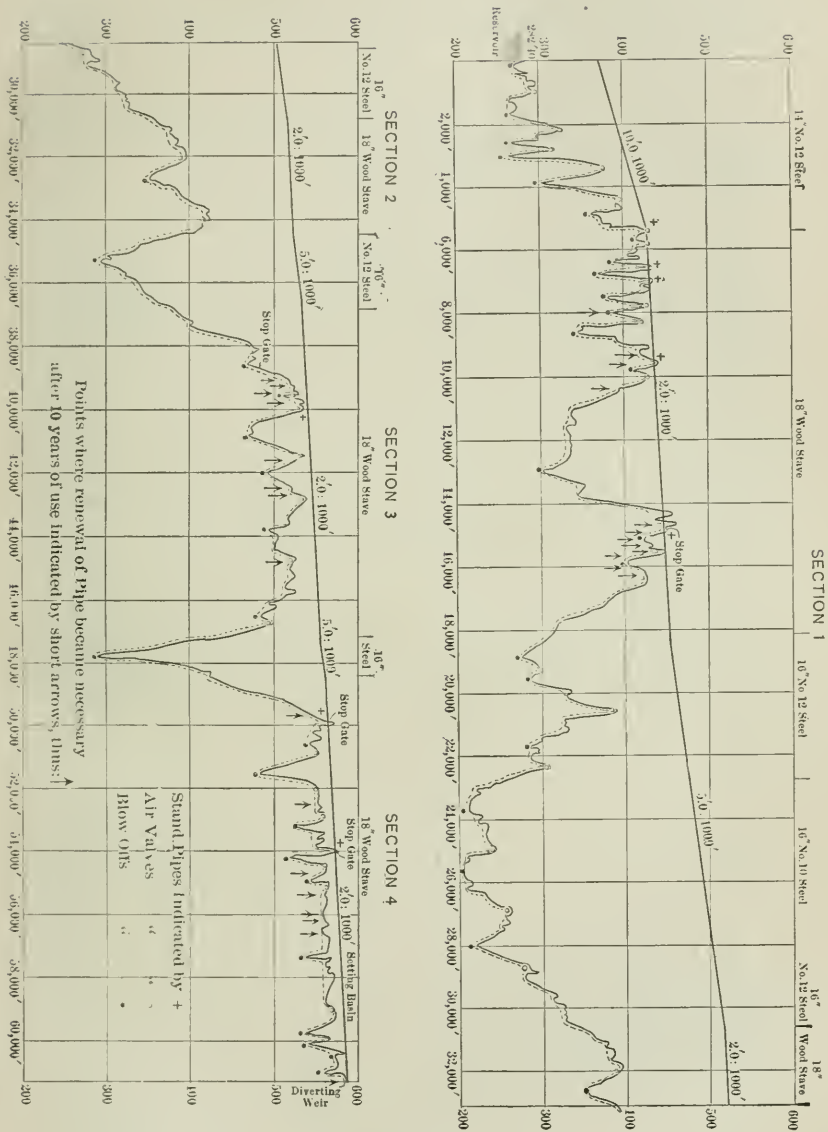 SECTION 1
14" No.12 Steel
18" Wood Stave
16" No 12 Steel
16" No.10 Steel
16"
No.12 Steel
18"
Wood Stave
600
500
100
300
200
Reservoir
10.'0: 1000'
2.'0: 1000'
5.'0: 1000'
2.'0: 1000'
Stop Gate
2,000'
1,000'
6,000'
8,000'
10,000'
12,000'
14,000'
16,000'
18,000'
20,000'
22,000'
21,000'
26,000'
28,000'
30,000'
32,000'
600
500
100
300
200
SECTION 2
SECTION 3
SECTION 4
16"
No.12 Steel
18" Wood Stave
No.12 Steel
18" Wood Stave
16"
Steel
18" Wood Stave
600
500
100
300
200
2.'0: 1000'
5.'0: 1000'
2.'0: 1000'
5.'0: 1000'
2.'0: 1000'
Stop Gate
Stop Gate
Stop Gate
Settling Basin
Diverting
Weir
Points where renewal of Pipe became necessary
after 10 years of use indicated by short arrows, thus:
Stand Pipes Indicated by +
Air Valves " "
Blow Offs " •
30,000'
32,000'
34,000'
36,000'
38,000'
10,000'
12,000'
44,000'
46,000'
18,000'
50,000'
52,000'
54,000'
56,000'
58,000'
60,000'
600
500
100
300
200